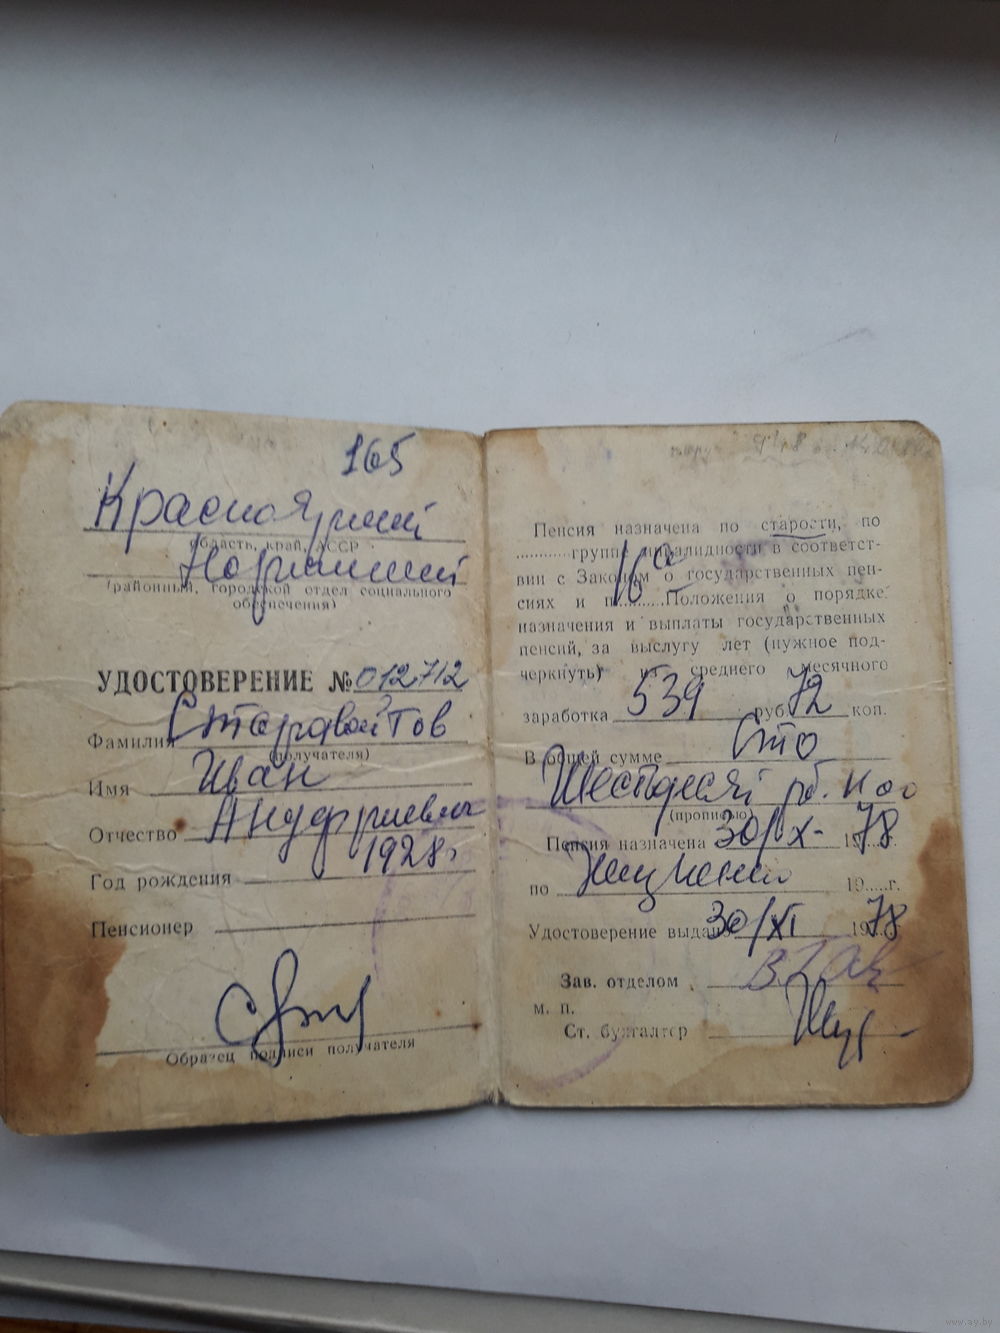 165
Красноярский
область, край, АССР
Норильский
(районный, городской отдел социального
обеспечения)
УДОСТОВЕРЕНИЕ № 012712
Фамилия Старовойтов
(получателя)
Имя Иван
Отчество Ануфриевич
Год рождения 1928г.
Пенсионер
Образец подписи получателя
Пенсия назначена по старости, по
............группе инвалидности в соответст-
вии с Законом о государственных пен-
сиях и п..........Положения о порядке
назначения и выплаты государственных
пенсий, за выслугу лет (нужное под-
черкнуть) среднего месячного
заработка 539 руб. 72 коп.
В общей сумме Сто
Шестьдесят рб.
(прописью)
Пенсия назначена 30/X- 1978
по 19.....г.
Удостоверение выдано 30/XI 1978
Зав. отделом
м. п.
Ст. бухгалтер
www.ay.by